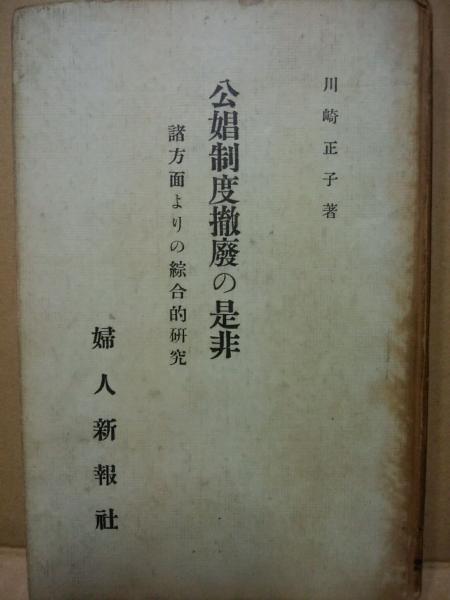 川崎正子著
公娼制度撤廢の是非
諸方面よりの綜合的硏究
婦人新報社